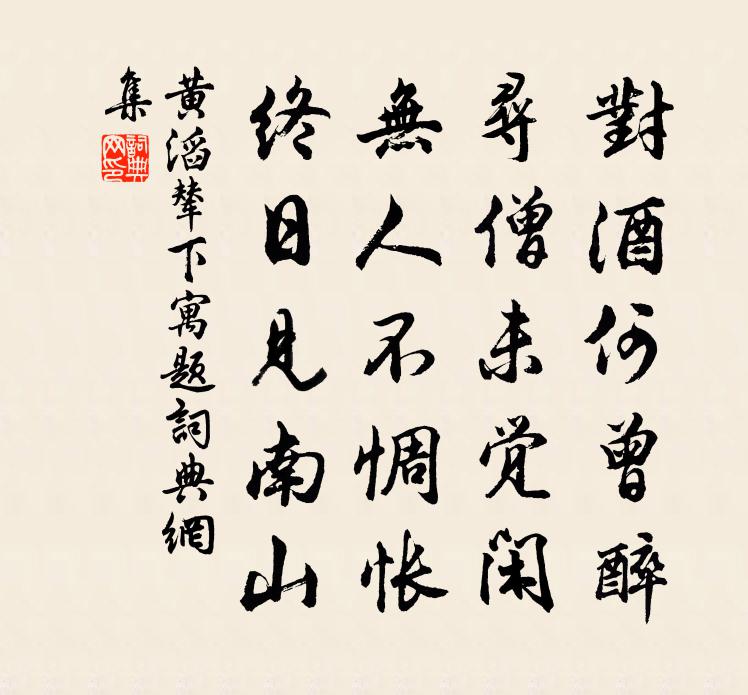 對酒何曾醉
尋僧未覺閑
無人不惆悵
終日見南山
黃滔輦下寓題詞典網
集
詞典
网印